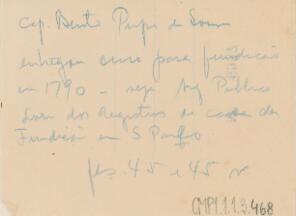 Cap. Bento Pires de
entregou ouro para fundição
em 1790 - veja Arq Publico
Livro dos Registros de casa de
Fundição em S. Paulo
fls. 45 e 45 v
CMP1.1.3.468